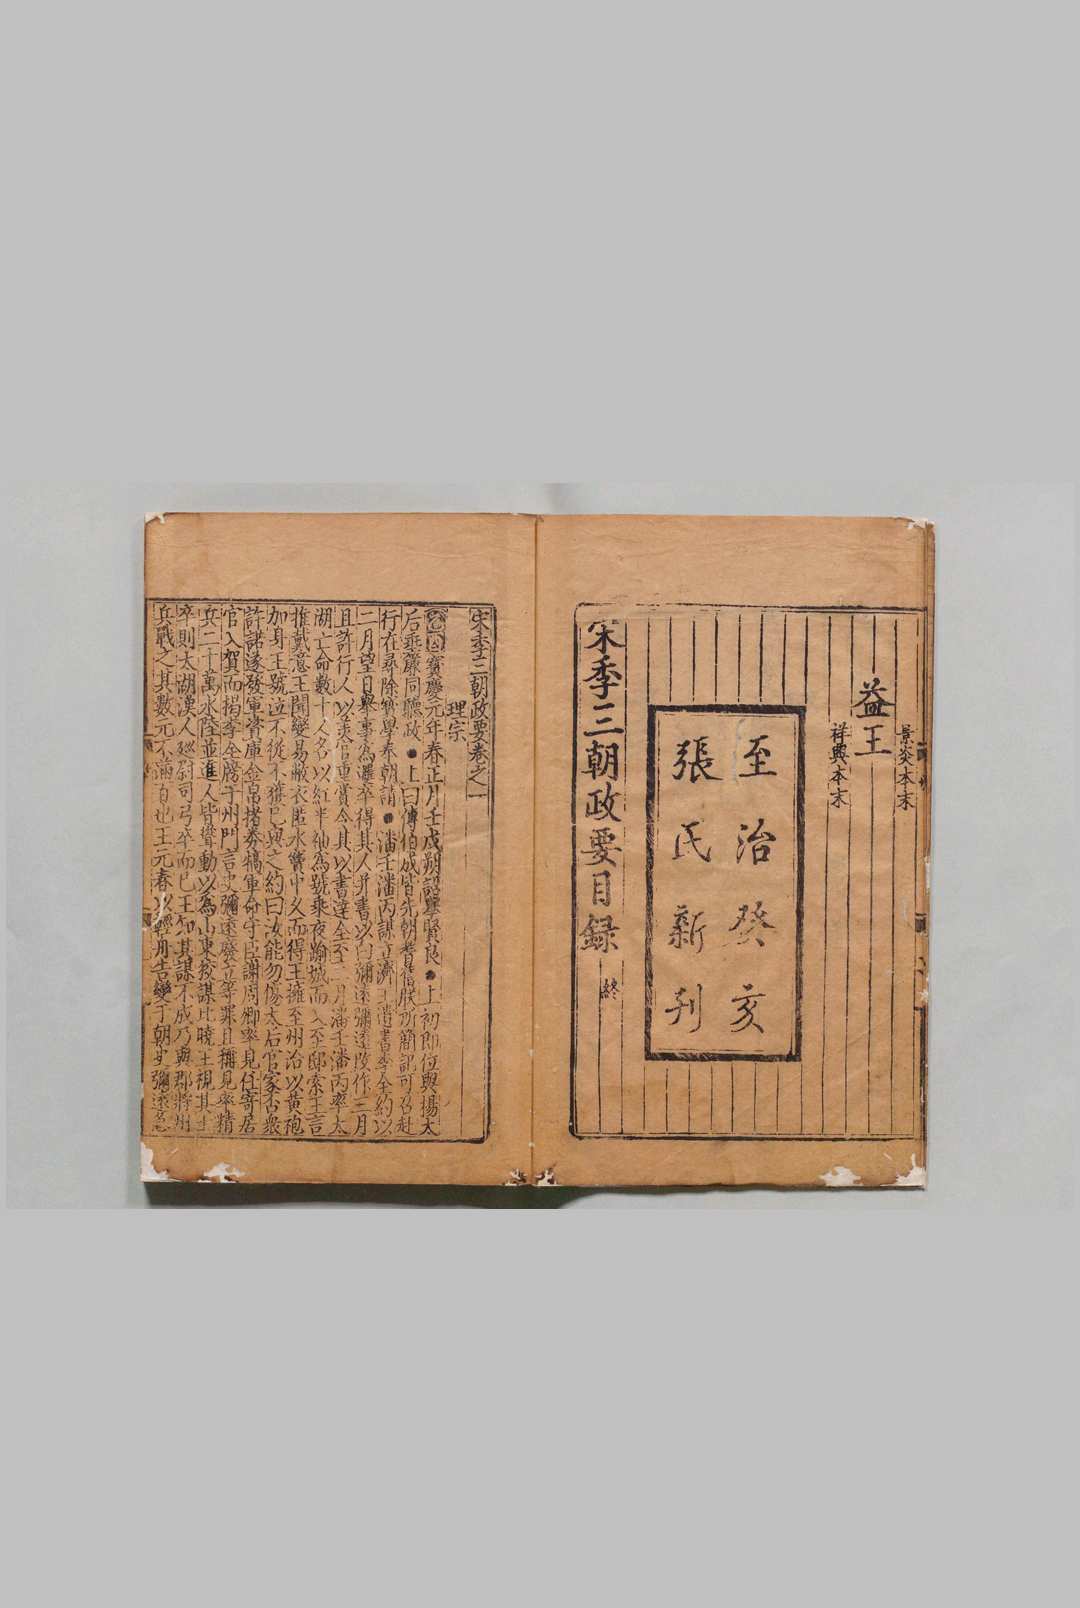 景炎本末
益王
祥興本末
至治癸亥
張氏新刊
宋季三朝政要目錄 終
宋季三朝政要卷之一
理宗
寶慶元年春正月壬戌朔詔舉賢良●上初即位與楊太
后垂簾同聽政●上曰傅伯成皆先朝耆舊朕所簡記可召赴
行在尋除 學奉朝請●潘壬潘丙謀立濟王遺書李全約以
二月望日舉事為邏卒得其人并書以白彌遠彌遠改作三月
且許行人以美官重賞令其以書達全至二月潘壬潘丙率太
湖亡命數十人名以紅半袖為號乘夜踰城而入至邸索王言
推戴意王聞變易敝衣匿水竇中久而得王擁至州治以黃袍
加身王號泣不從不獲已與之約曰汝能勿傷太后官家否眾
許諾遂發軍資庫金帛楮券犒軍命守臣謝周卿率見任寄居
官入賀而揭李全牓于州門言史彌遠廢立等罪且稱見率精
兵二十萬水陸並進人皆聳動以為山東狡謀比曉王視其士
卒則太湖漢人巡尉司弓卒而已王知其謀不成乃與郡將州
兵戰之其數元不滿百也王元春以輕舟告變于朝史彌遠